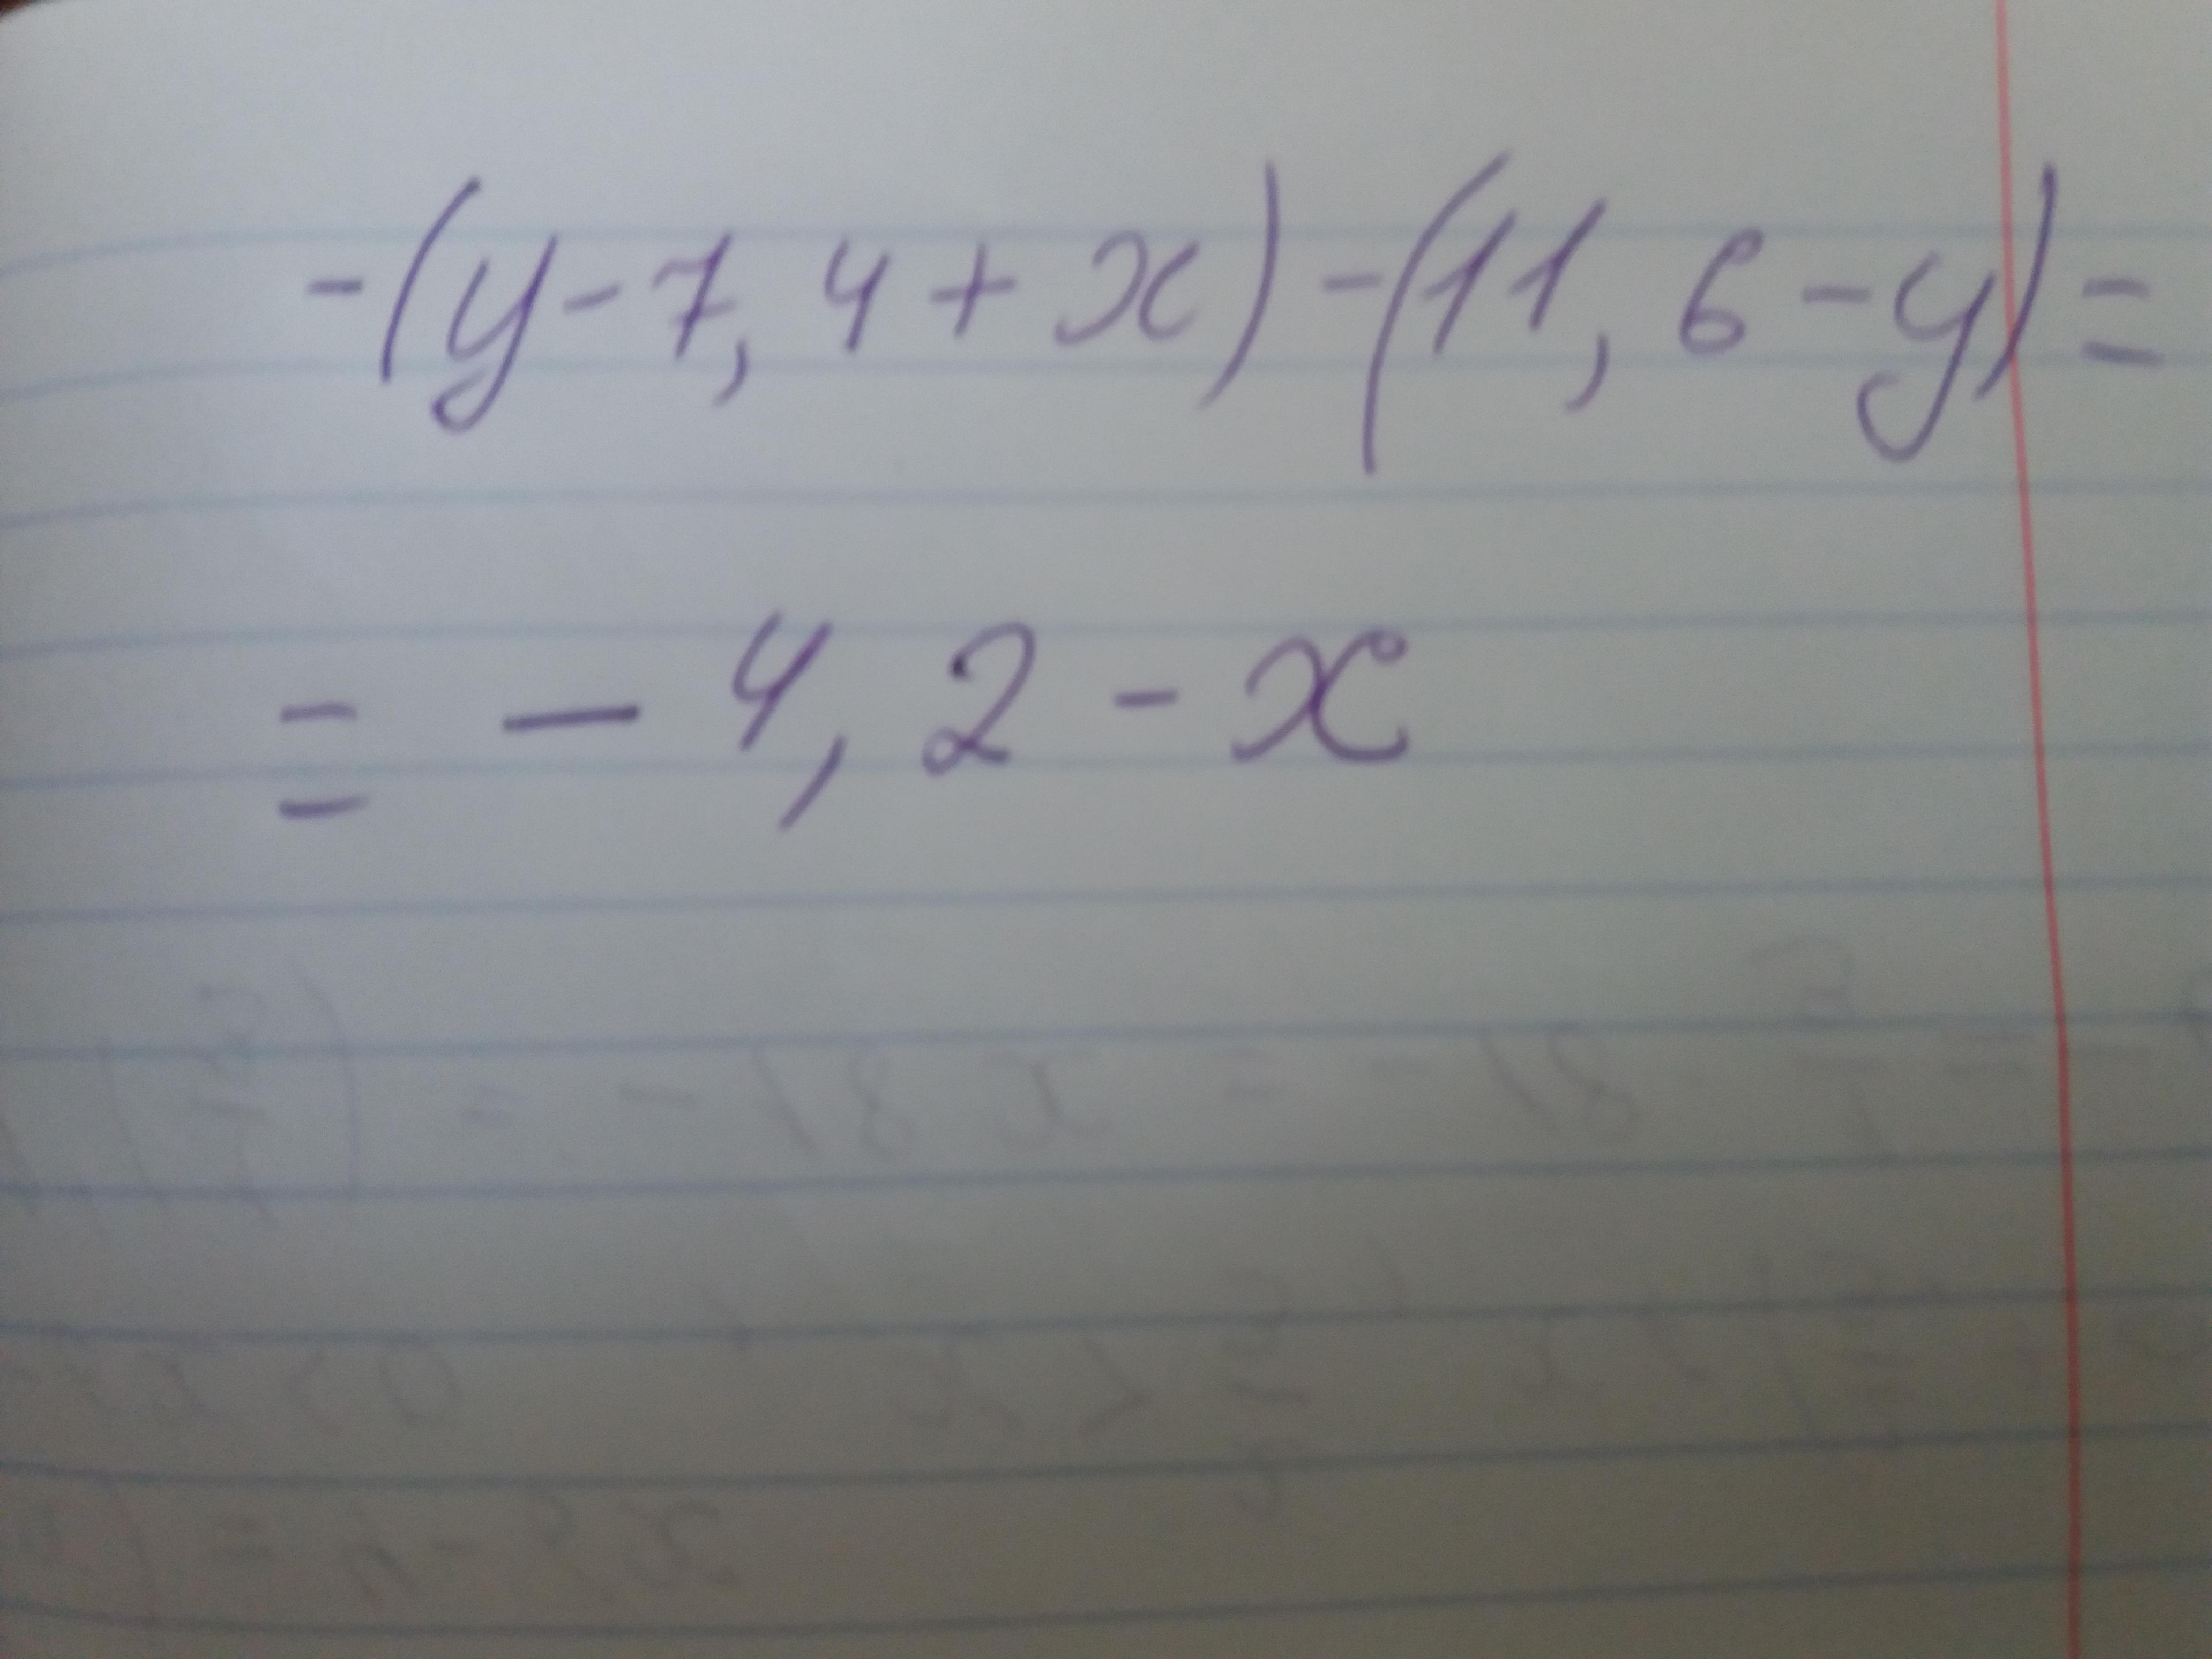 -(y-7,4+x)-(11,6-y)=
= -4,2-x